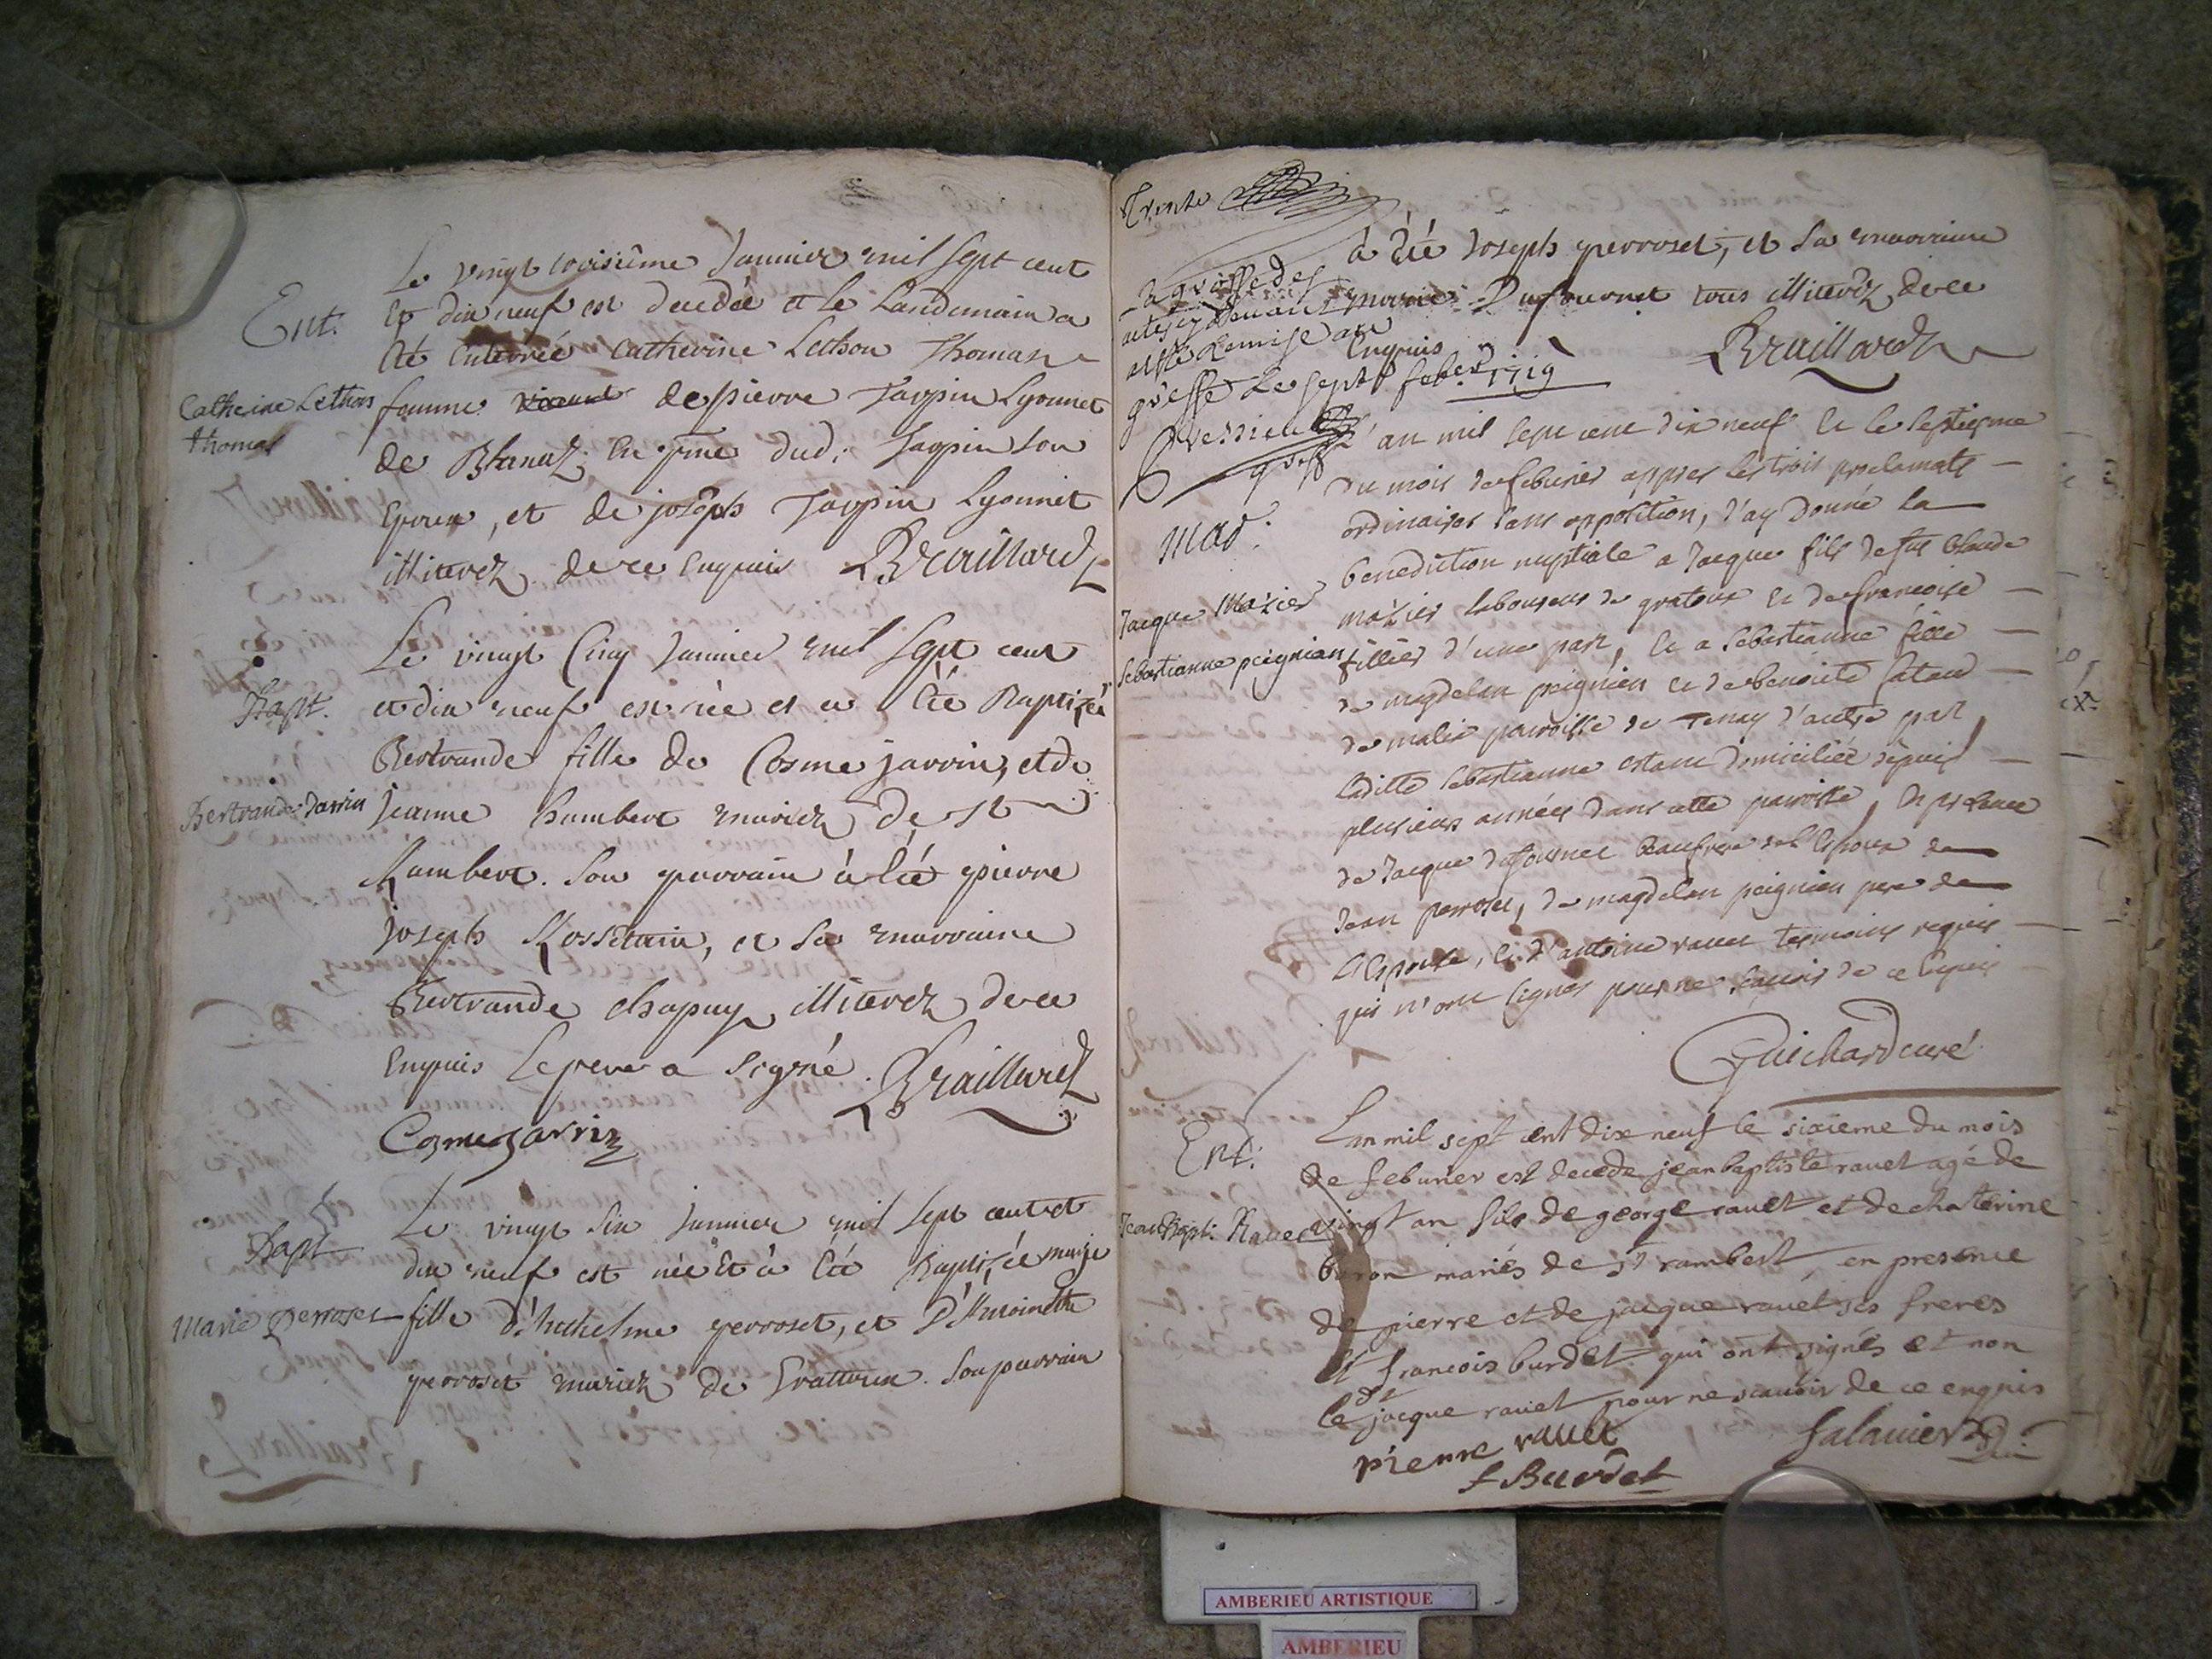 Le vingt troisième Janvier mil sept cent
Ent.
et dix neuf est decedée et le Landemain a
été enterrée Catherine Lethon Thomas
Catherine Lethon
Thomas
femme de pierre Tarpin Lyonnet
de Blanaz, en pnce dud: Tarpin son
epoux, et de josèph Tarpin Lyonnet
illiterez de ce enquis Braillard
Le vingt Cinq Janvier mil sept cent
Bapt.
et dix neuf est née et a été Baptizée
Bertrande fille de Cosme jarrin, et de
Bertrande Jarrin
Jeanne humbert mariez de St
Rambert. Son parrain à été pierre
Joseph Rossetain, et sa marraine
Bertrande chapuy illiterez de ce
enquis Le pere a signé. Braillard
Cosme Jarrin
Le vingt six Janvier mil sept cent et
Bapt
dix neuf est née et à été Baptizée marie
Marie perroset
fille d'Anthelme perroset, et d'Antoinette
perroset mariez de Grattoux. Son parrain
Trente
à été Joseph perroset, et Sa marraine
marie Dufournet tous illiterez de ce
enquis
Braillard
La grosse des
actes cy devant a
esté Remise au
greffe Le sept feber 1719
greff
L'an mil sept cent dix neuf et le septiesme
du mois de febvrier appres les trois proclamats
Mar.
ordinaires sans opposition, J'ay donné la
benediction nuptiale a Jacque fils de fut Claude
Jacque Mazier
mazier laboureur de gratoux et de francoise
Sebastianne peignien
fillier d'une part, et a Sebastianne fille
de magdelan peignien et de benoite
de malix parroisse de Tenay d'autre part
Laditte Sebastianne estant domiciliée depuis
plusieurs années dans cette parroisse, en presence
de Jacque dufournet beaufrere de l'Espoux de
Jean perroset, de magdelan peignien pere de
L'Espouse, et d'antoine ravet tesmoins requis
qui n'ont signés pour ne scavoir de ce enquis
Guichard curé
Lan mil sept cent dix neuf le sixieme du mois
Ent:
de febvrier est decede jean baptiste ravet agé de
Jean Bapt: Ravet
vingt an fils de george ravet et de chaterine
buron mariés de st rambert, en presence
de pierre et de jacque ravet ses freres
et francois burdet qui ont signés et non
le dt jacque ravet pour ne scavoir de ce enquis
pierre ravet
f Burdet
AMBERIEU ARTISTIQUE
AMBERIEU